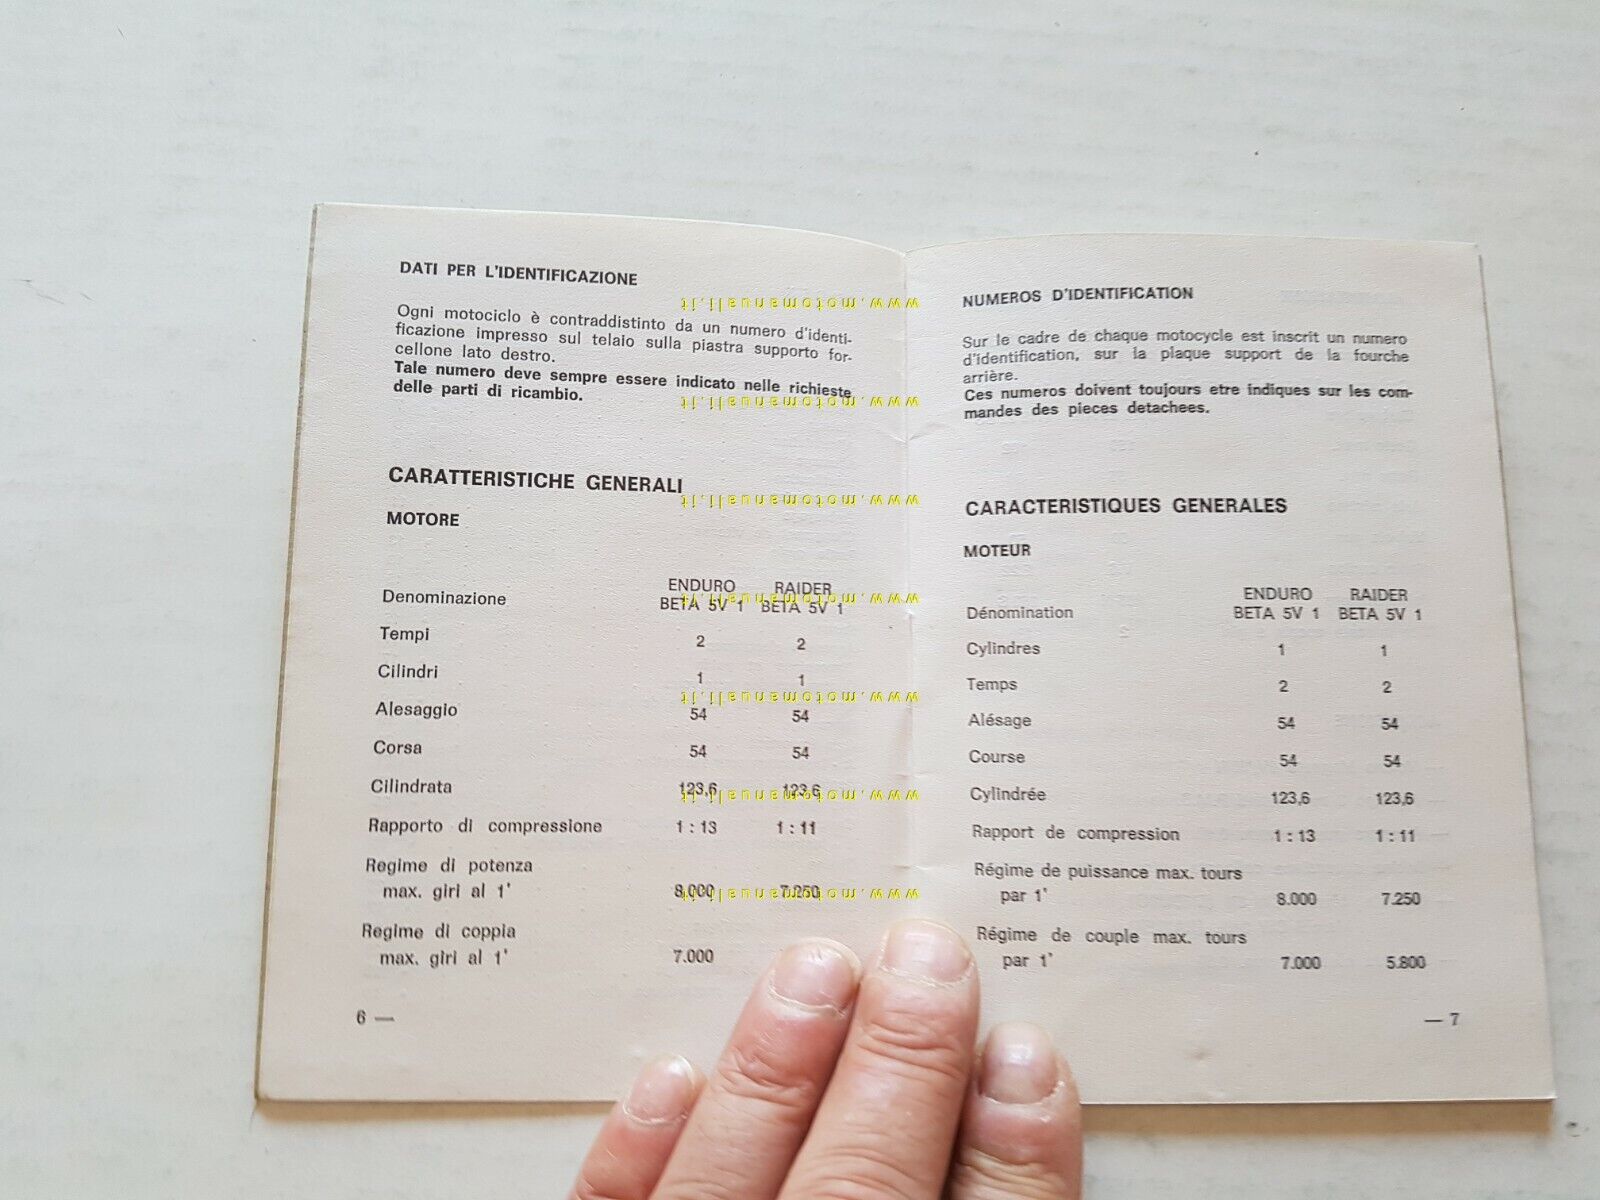 DATI PER L'IDENTIFICAZIONE
Ogni motociclo è contraddistinto da un numero d'identi-
ficazione impresso sul telaio sulla piastra supporto for-
cellone lato destro.
Tale numero deve sempre essere indicato nelle richieste
delle parti di ricambio.
CARATTERISTICHE GENERALI
MOTORE
Denominazione ENDURO BETA 5V 1 RAIDER BETA 5V 1
Tempi 2 2
Cilindri 1 1
Alesaggio 54 54
Corsa 54 54
Cilindrata 123,6 123,6
Rapporto di compressione 1 : 13 1 : 11
Regime di potenza
max. giri al 1' 8.000 7.250
Regime di coppia
max. giri al 1' 7.000
6 —
NUMEROS D'IDENTIFICATION
Sur le cadre de chaque motocycle est inscrit un numero
d'identification, sur la plaque support de la fourche
arrière.
Ces numeros doivent toujours etre indiques sur les com-
mandes des pieces detachees.
CARACTERISTIQUES GENERALES
MOTEUR
Dénomination ENDURO BETA 5V 1 RAIDER BETA 5V 1
Cylindres 1 1
Temps 2 2
Alésage 54 54
Course 54 54
Cylindrée 123,6 123,6
Rapport de compression 1 : 13 1 : 11
Régime de puissance max. tours
par 1' 8.000 7.250
Régime de couple max. tours
par 1' 7.000 5.800
— 7
www.motomanuali.it
www.motomanuali.it
www.motomanuali.it
www.motomanuali.it
www.motomanuali.it
www.motomanuali.it
www.motomanuali.it